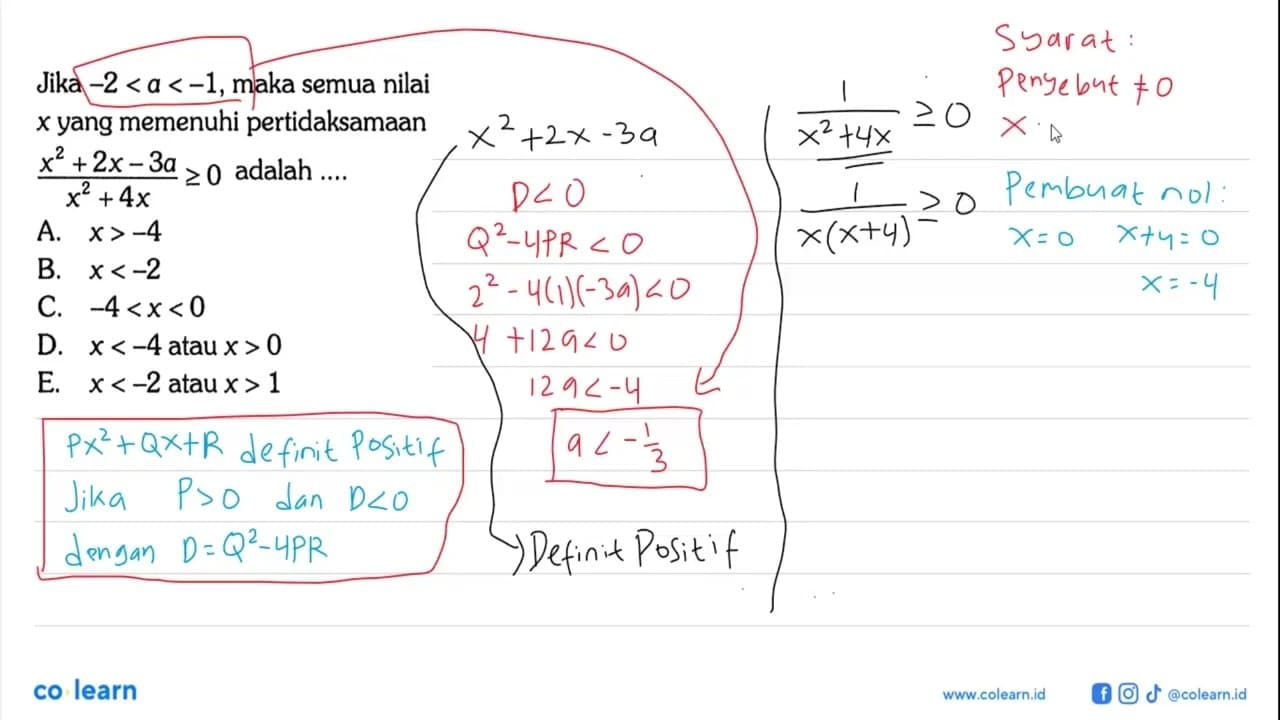 Jika -2 < a < -1, maka semua nilai
x yang memenuhi pertidaksamaan
x² + 2x - 3a
x² + 4x
≥ 0 adalah ....
A. x > -4
B. x < -2
C. -4 < x < 0
D. x < -4 atau x > 0
E. x < -2 atau x > 1
Px² + Qx + R definit Positif
Jika P > 0 dan D < 0
dengan D = Q² - 4PR
x² + 2x - 3a
D < 0
Q² - 4PR < 0
2² - 4(1)(-3a) < 0
4 + 12a < 0
12a < -4
a < -1/3
Definit Positif
1
x² + 4x
≥ 0
1
x(x+4)
≥ 0
Syarat :
Penyebut ≠ 0
x
Pembuat nol :
x = 0 x + 4 = 0
x = -4
co learn
www.colearn.id
@colearn.id